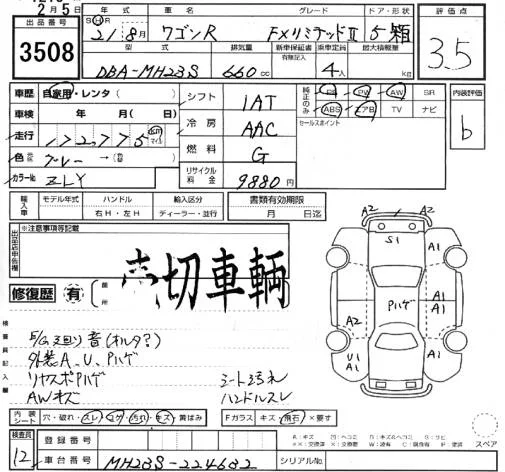 2月5日
出品番号 3508
年式 21年8月
車名 ワゴンR
グレード FXリミテッドⅡ
ドア・形状 5ドア箱
評価点 3.5
型式 DBA-MH23S
排気量 660cc
新車保証書 有限記入
乗車定員 4人
最大積載量 kg
車歴 自家用・レンタ( )
車検 年 月( 日)
走行 127775 km マイル
色 グレー→( )
カラーNo. ZLY
シフト 1AT
冷房 AAC
燃料 G
リサイクル料金 9880円
純正のみ PS PW AW SR
ABS エアB TV ナビ
セールスポイント
内装評価 b
輸入車 モデル年式 ハンドル 右H・左H 輸入区分 ディーラー・並行
書類有効期限 月 日迄
出品店申告欄
※注意事項等記載
売切車輌
修復歴 有 箇所
検査員記入欄
E/G廻り音(オルタ?)
外装A、U、Pハゲ
リヤスポPハゲ
AWキズ
シート汚れ
ハンドルスレ
A2 A2
S1 A1
A1
A1
Pハゲ
A2
U1
A1
A1
A2
内装シート 穴・破れ・スレ・コゲ・汚れ・キズ・黄ばみ
Fガラス キズ・飛石・×要す
スペア
検査員 12
登録番号
車台番号 MH23S-224632
シリアルNo.